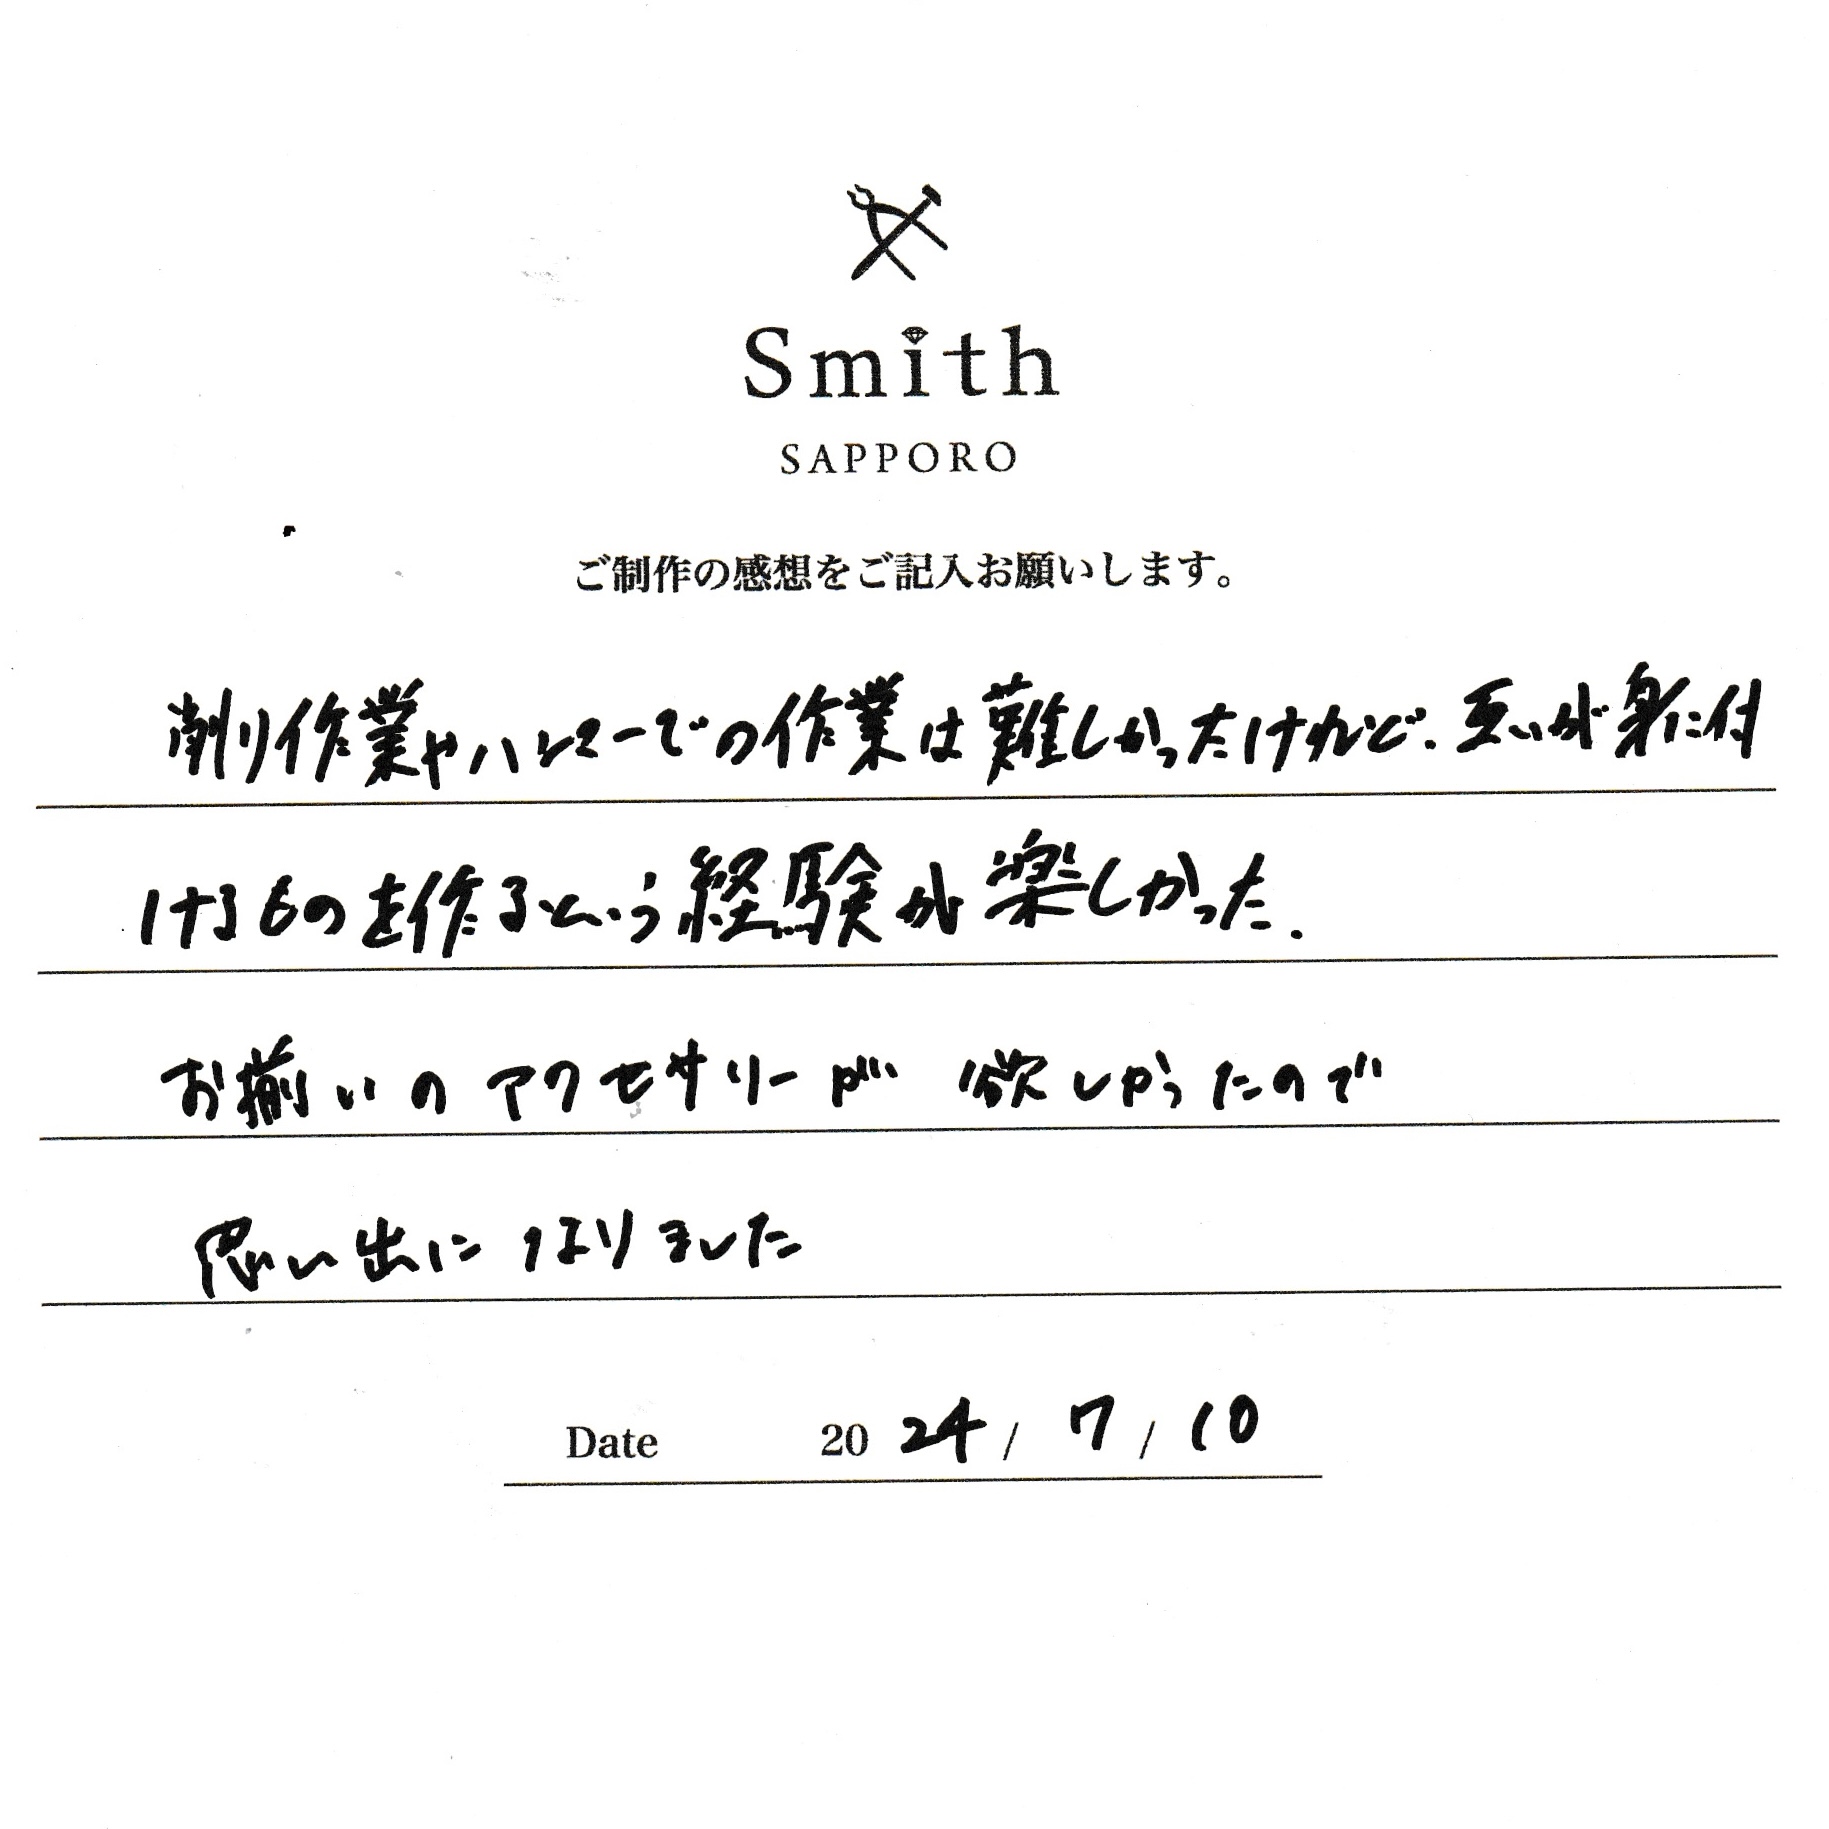 Smith
SAPPORO
ご制作の感想をご記入お願いします。
削り作業やハンマーでの作業は難しかったけれど、互いが身に付
けるものを作るという経験が楽しかった。
お揃いのアクセサリーが欲しかったので
思い出になりました
Date 2024/7/10